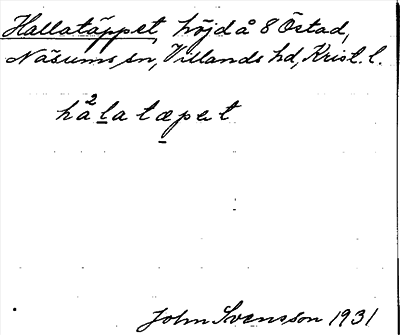 Hallatäppet, höjd å 8 Östad,
Näsums sn, Villands hd, Krist. l.
hа²latæpet
John Svensson 1931